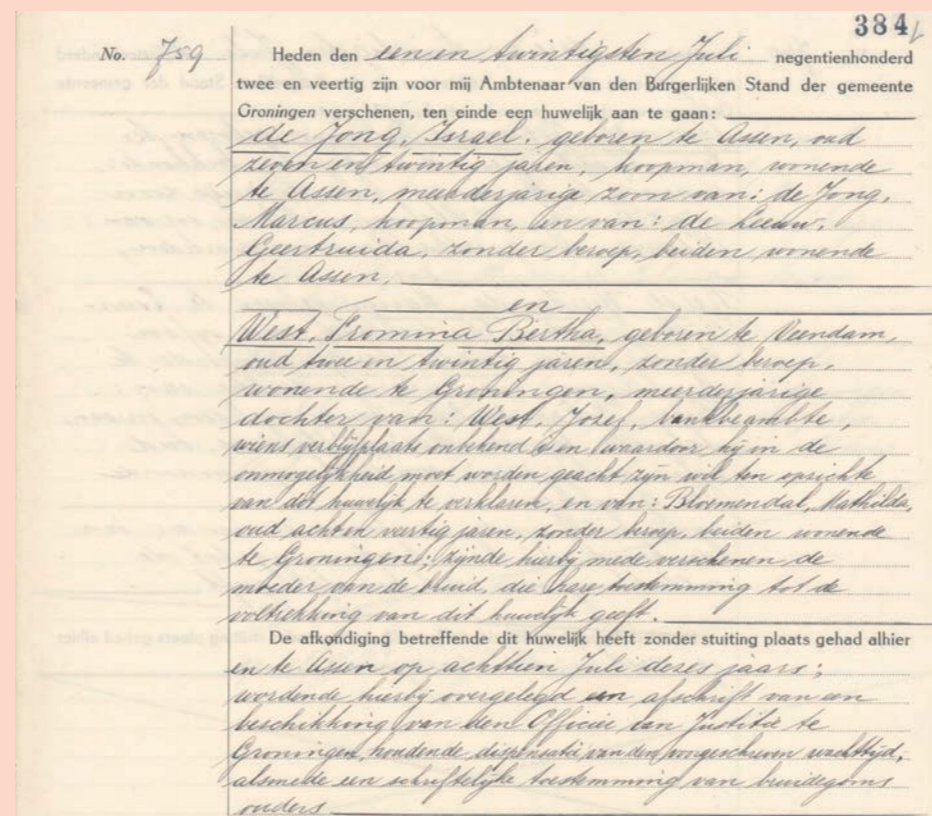 384
No. 759
Heden den een en twintigsten Juli negentienhonderd
twee en veertig zijn voor mij Ambtenaar van den Burgerlijken Stand der gemeente
Groningen verschenen, ten einde een huwelijk aan te gaan:
de Jong, Israel, geboren te Assen, oud
zeven en twintig jaren, koopman, wonende
te Assen, meerderjarige zoon van: de Jong,
Marcus, koopman, en van: de Leeuw,
Geertruida, zonder beroep, beiden wonende
te Assen,
en
West, Fromina Bertha, geboren te Veendam,
oud twee en twintig jaren, zonder beroep,
wonende te Groningen, meerderjarige
dochter van: West, Jozef, bankbeambte,
wiens verblijfplaats onbekend is en waardoor hij in de
onmogelijkheid moet worden geacht zijn wil ten opzichte
van dit huwelijk te verklaren, en van: Bloemendal, Mathilda,
oud acht en veertig jaren, zonder beroep, beiden wonende
te Groningen; zijnde hierbij mede verschenen de
moeder van de bruid, die hare toestemming tot de
voltrekking van dit huwelijk geeft.
De afkondiging betreffende dit huwelijk heeft zonder stuiting plaats gehad alhier
en te Assen op achttien Juli dezes jaars;
wordende hierbij overgelegd een afschrift van een
beschikking van den Officier van Justitie te
Groningen, houdende dispensatie van den voorgeschreven wachttijd,
alsmede een schriftelijke toestemming van bruidegoms
ouders